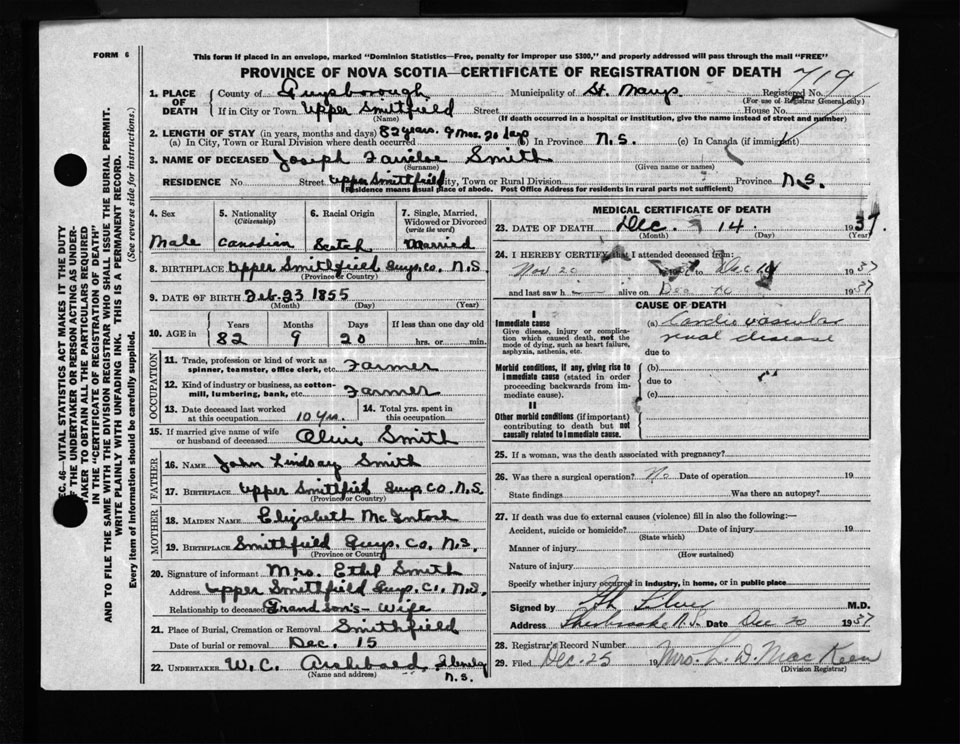 FORM 6
This form if placed in an envelope, marked "Dominion Statistics—Free, penalty for improper use $300," and properly addressed will pass through the mail "FREE"
PROVINCE OF NOVA SCOTIA—CERTIFICATE OF REGISTRATION OF DEATH
719
1. PLACE OF DEATH
County of Guysborough Municipality of St. Marys Registered No.
(For use of Registrar General only)
If in City or Town Upper Smithfield Street House No.
(Name) (If death occurred in a hospital or institution, give the name instead of street and number)
2. LENGTH OF STAY (in years, months and days) 82 years. 9 Mos. 20 days
(a) In City, Town or Rural Division where death occurred (b) In Province N.S. (c) In Canada (if immigrant)
3. NAME OF DECEASED Joseph Smith
(Surname) (Given name or names)
RESIDENCE No Street Upper Smithfield City, Town or Rural Division Province N.S.
(Residence means usual place of abode. Post Office Address for residents in rural parts not sufficient)
4. Sex
Male
5. Nationality
(Citizenship)
Canadian
6. Racial Origin
Scotch
7. Single, Married, Widowed or Divorced
(write the word)
Married
8. BIRTHPLACE Upper Smithfield Guys. Co. N.S.
(Province or Country)
9. DATE OF BIRTH Feb. 23 1855
(Month) (Day) (Year)
10. AGE in
Years Months Days If less than one day old
82 9 20 hrs. or min.
OCCUPATION
11. Trade, profession or kind of work as spinner, teamster, office clerk, etc. Farmer
12. Kind of industry or business, as cotton-mill, lumbering, bank, etc. Farmer
13. Date deceased last worked at this occupation 10 yrs.
14. Total yrs. spent in this occupation
15. If married give name of wife or husband of deceased Smith
FATHER
16. NAME John Lindsay Smith
17. BIRTHPLACE Upper Smithfield Guys Co. N.S.
(Province or Country)
MOTHER
18. MAIDEN NAME Elizabeth McIntosh
19. BIRTHPLACE Smithfield Guys. Co. N.S.
(Province or Country)
20. Signature of informant Mrs. Ethel Smith
Address Upper Smithfield Guys. Co. N.S.
Relationship to deceased Grandson's - Wife
21. Place of Burial, Cremation or Removal Smithfield
Date of burial or removal Dec. 15
22. UNDERTAKER W.C. Archibald
N.S.
(Name and address)
MEDICAL CERTIFICATE OF DEATH
23. DATE OF DEATH Dec. 14. 1937.
(Month) (Day) (Year)
24. I HEREBY CERTIFY that I attended deceased from:
Nov 20 to Dec 1937
and last saw h alive on Dec 10 1937
CAUSE OF DEATH
I
Immediate cause
Give disease, injury or complication which caused death, not the mode of dying, such as heart failure, asphyxia, asthenia, etc.
(a) Cardio vascular
renal disease
due to
Morbid conditions, if any, giving rise to immediate cause (stated in order proceeding backwards from immediate cause).
(b)
due to
(c)
II
Other morbid conditions (if important) contributing to death but not causally related to immediate cause.
25. If a woman, was the death associated with pregnancy?
26. Was there a surgical operation? No Date of operation 19
State findings Was there an autopsy?
27. If death was due to external causes (violence) fill in also the following:—
Accident, suicide or homicide? Date of injury 19
(State which)
Manner of injury
(How sustained)
Nature of injury
Specify whether injury occurred in industry, in home, or in public place
Signed by M.D.
Address Sherbrooke N.S. Date Dec 20 1937
28. Registrar's Record Number
29. Filed Dec. 25 19 Mrs. L. D. MacKeen
(Division Registrar)
SEC. 46—VITAL STATISTICS ACT MAKES IT THE DUTY
OF THE UNDERTAKER OR PERSON ACTING AS UNDER-
TAKER TO OBTAIN ALL THE PARTICULARS REQUIRED
IN THE "CERTIFICATE OF REGISTRATION OF DEATH"
AND TO FILE THE SAME WITH THE DIVISION REGISTRAR WHO SHALL ISSUE THE BURIAL PERMIT.
WRITE PLAINLY WITH UNFADING INK. THIS IS A PERMANENT RECORD.
Every item of information should be carefully supplied. (See reverse side for instructions.)